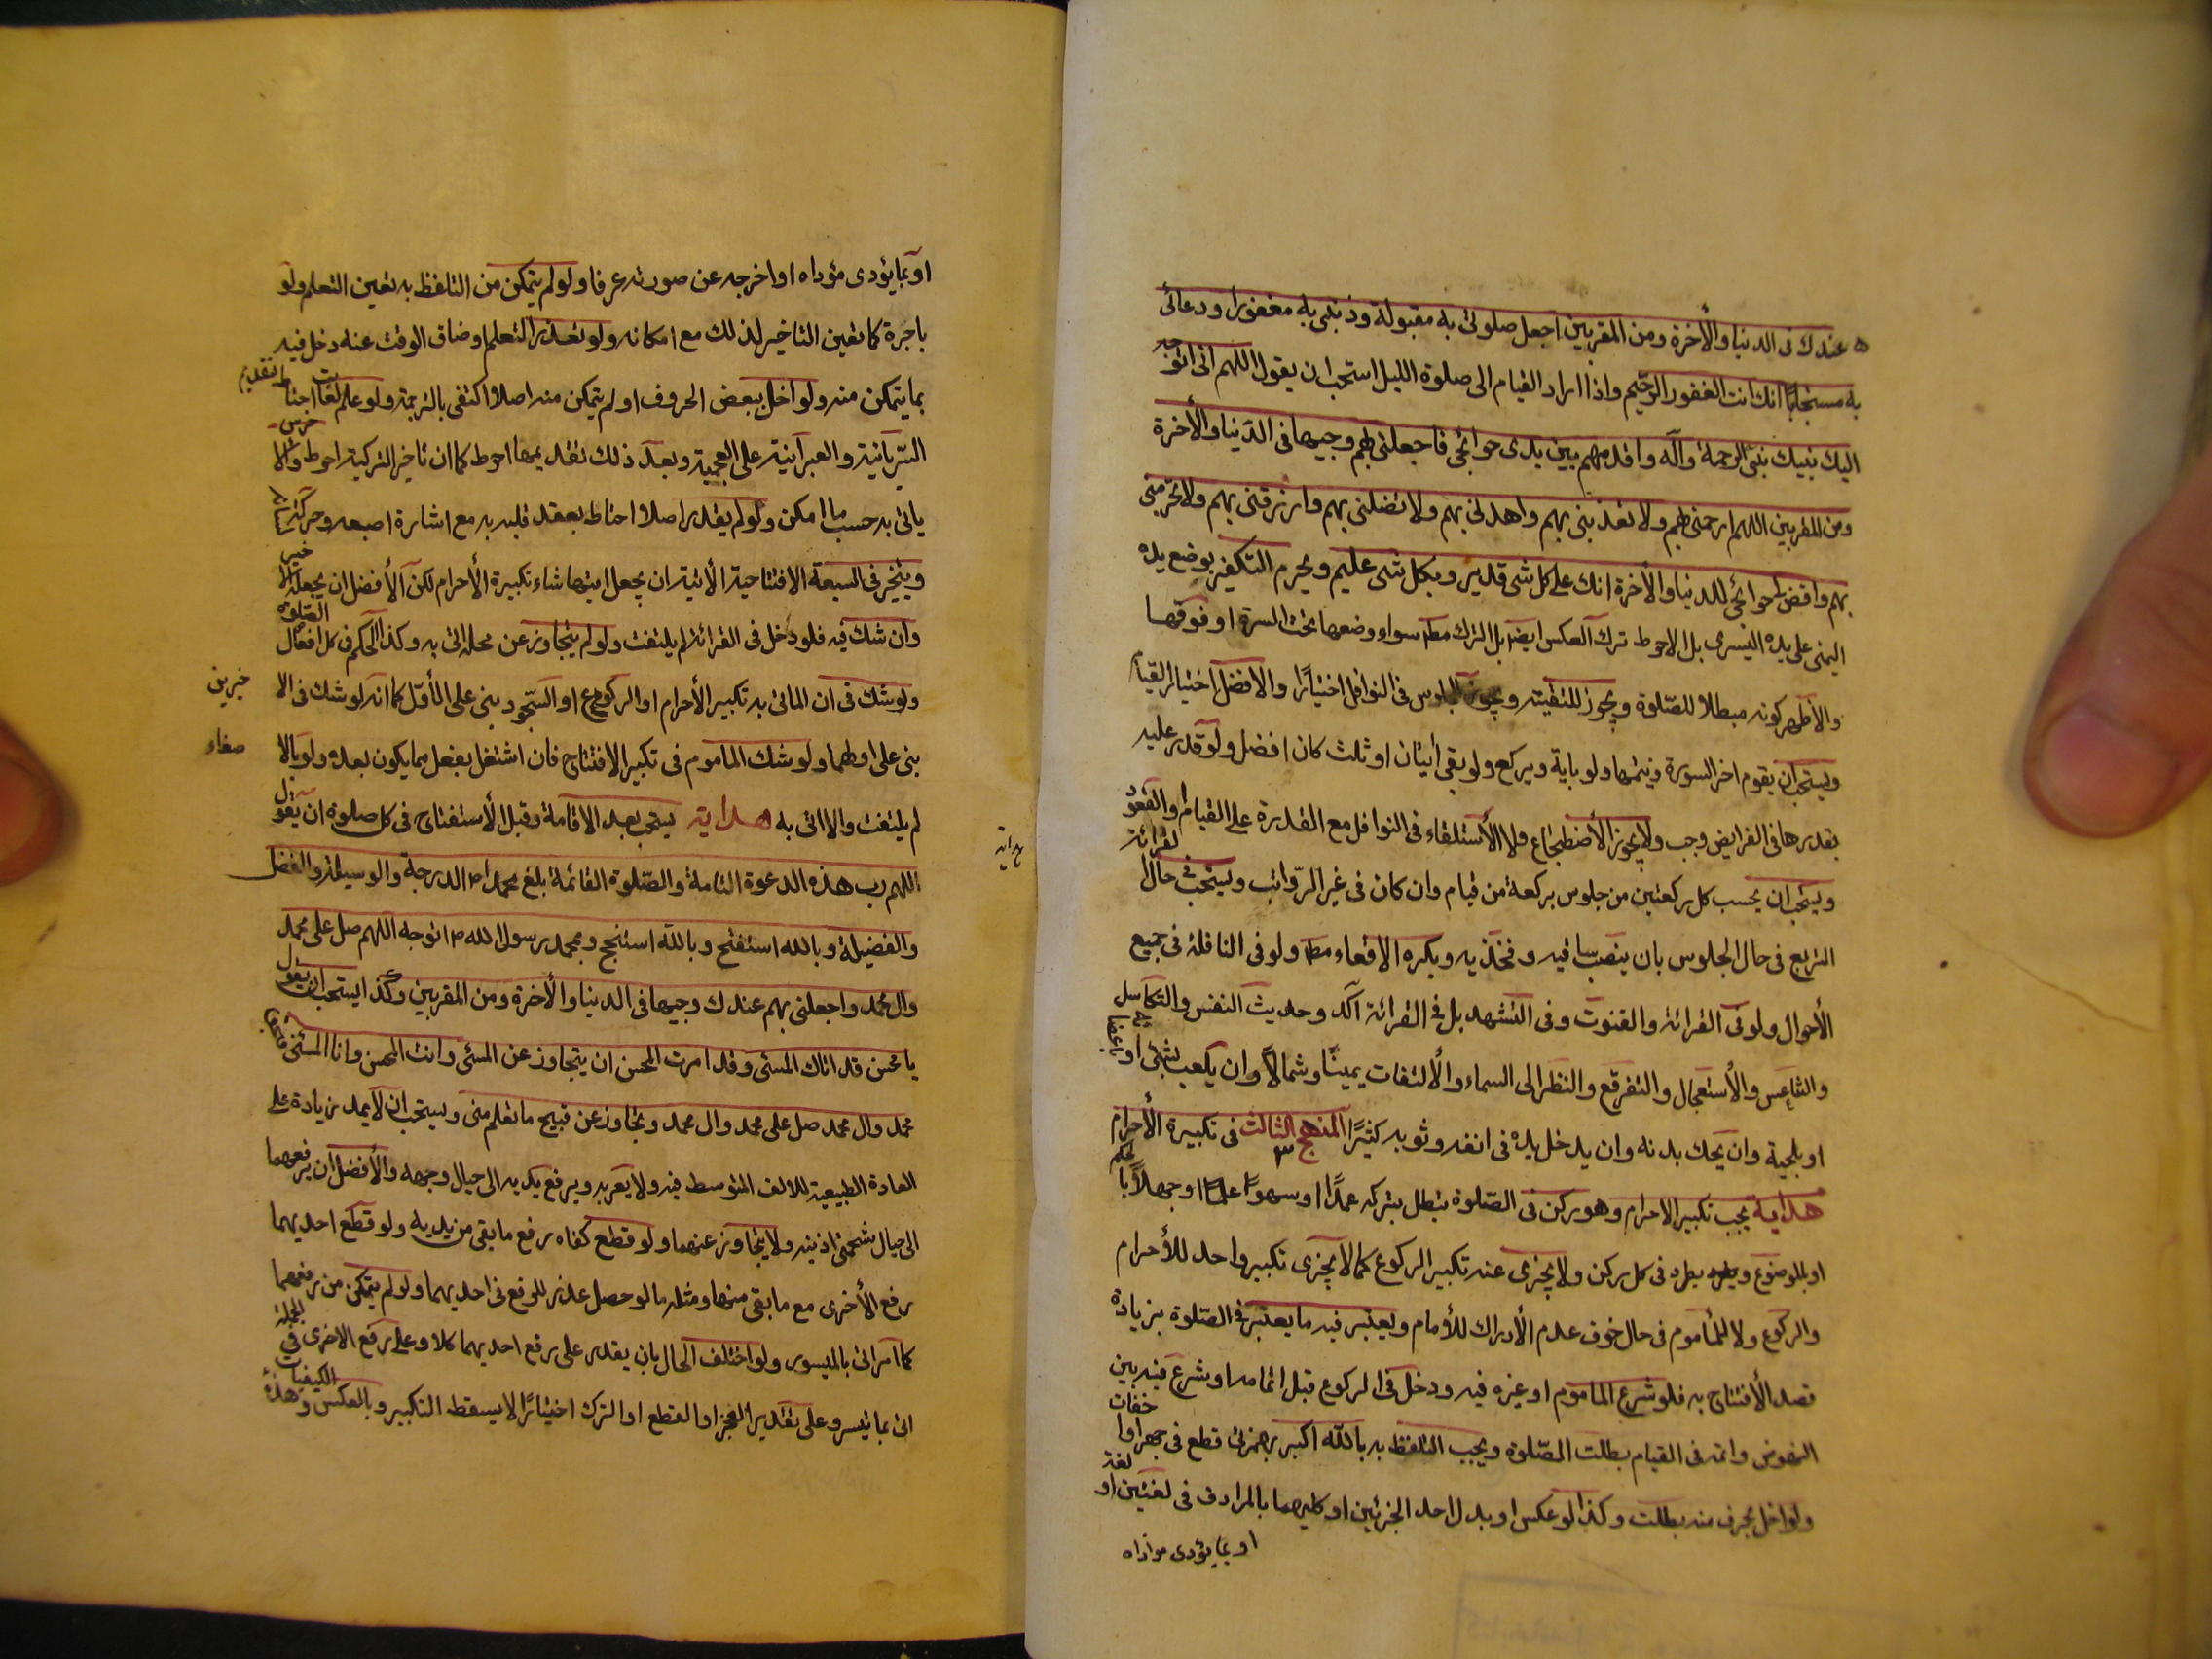 ه عندك فى الدنيا والأخرة ومن المقربين اجعل صلوتى به مقبولة وذنبى به مغفورا ودعائى
به مستجابا انك انت الغفور الرحيم واذا اراد القيام الى صلوة الليل استحب ان يقول اللهم انى اتوجه
اليك بنبيك نبى الرحمة وآله واقدمهم بين يدى حوائجى فاجعلنى بهم وجيها فى الدنيا والأخرة
ومن المقربين اللهم ارحمنى بهم ولا تعذبنى بهم واهدنى بهم ولا تضلنى بهم وارزقنى بهم ولا تحرمنى
بهم واقض لى حوائجى للدنيا والأخرة انك على كل شى قدير وبكل شى عليم ويحرم التكفير بوضع يده
اليمنى على يده اليسرى بل الاحوط ترك العكس ايضا بل الترك مطم سواء وضعها تحت السرة او فوقها
والأظهر كونه مبطلا للصلوة ويجوز للتقية ويجوز الجلوس فى النوافل اختيارًا والافضل اختيار القيام
ويستحب ان يقوم اخر السورة ويتمها ولو باية ويركع ولو بقى ايتان او ثلث كان افضل ولو قدر عليه
بقدرها فى الفرايض وجب ولا يجوز الأضطجاع ولا الأستلقاء فى النوافل مع القدرة على القيام والقعود
ويستحب ان يحسب كل ركعتين من جلوس بركعة من قيام وان كان فى غير الرواتب ويستحب فى حال القرائة
التربع فى حال الجلوس بان ينصب ساقيه وفخذيه ويكره الاقعاء مطم ولو فى النافلة فى جميع
الأحوال ولو فى القرائة والقنوت وفى التشهد بل فى القرائة آكد وحديث النفس والتكاسل
والتناعس والأستعجال والتفرقع والنظر الى السماء والألتفات يمينًا وشمالاً وان يلعب بشئ او باعضائه
او بلحية وان يحك بدنه وان يدخل يده فى انفه وثوبه كثيرًا المنهج الثالث فى تكبيرة الأحرام
هداية يجب تكبير الاحرام وهو ركن فى الصلوة تبطل بتركه عمدًا او سهوًا علمًا او جهلاً بالحكم
او بالموضوع ويطرد فى كل ركن ولا يجزى عنه تكبير الركوع كما لا يجزى تكبير واحد للأحرام
والركوع ولا للمأموم فى حال خوف عدم الأدراك للأمام ويعتبر فيه ما يعتبر فى الصلوة بزيادة
قصد الأفتتاح به فلو شرع الماموم او غيره فيه ودخل فى الركوع قبل اتمامه او شرع فيه بين
النهوض واتمه فى القيام بطلت الصلوة ويجب التلفظ به بالله اكبر بهمزتى قطع فى جهر او اخفات
ولو اخل بحرف منه بطلت وكذا لو عكس او بدل احد الجزئين او كليهما بالمرادف فى لغتين او لغة
او بما يؤدى مؤداه
او بما يؤدى مؤداه او اخرجه عن صورته عرفا ولو لم يتمكن من التلفظ به تعين التعلم ولو
باجرة كما تعين التاخير لذلك مع امكانه ولو تعذر التعلم او ضاق الوقت عنه دخل فيه
بما يتمكن منه ولو اخل ببعض الحروف او لم يتمكن منه اصلا اكتفى بالترجمة ولو علم لغات احتاط بتقديم
السريانية والعبرانية على العجمية وبعد ذلك تقديمها احوط كما ان تاخير التركية احوط والاخرس
ياتى به حسب ما امكن ولو لم يقدر اصلا احتاط بعقد قلبه به مع اشارة اصبعه وحركة لسانه
ويتخير فى السبعة الافتتاحية الأتية ان يجعل ايتها شاء تكبيرة الأحرام لكن الأفضل ان يجعلها الاخير
وان شك فيه فلو دخل فى القرائة لم يلتفت ولو لم يتجاوز عن محله اتى به وكذا الحكم فى كل افعال الصلوة
ولو شك فى ان الماتى به تكبير الأحرام او الركوع او السجود بنى على الأول كما انه لو شك فى الاخيرين
بنى على اولهما ولو شك الماموم فى تكبير الافتتاح فان اشتغل بفعل مما يكون بعده ولو بالاصغاء
لم يلتفت والا اتى به هداية يستحب بعد الاقامة وقبل الأستفتاح فى كل صلوة ان يقول
هداية
اللهم رب هذه الدعوة التامة والصلوة القائمة بلغ محمدا ص الدرجة والوسيلة والفضل
والفضيلة وبالله استفتح وبالله استنجح وبمحمد رسول الله ص اتوجه اللهم صل على محمد
وال محمد واجعلنى بهم عندك وجيها فى الدنيا والأخرة ومن المقربين وكذا يستحب ان يقول
يا محسن قد اتاك المسئى وقد امرت المحسن ان يتجاوز عن المسئى وانت المحسن وانا المسئى فبحق
محمد وال محمد صل على محمد وال محمد وتجاوز عن قبيح ما تعلم منى ويستحب ان لا يمد زيادة على
العادة الطبيعية للالف المتوسط فيه ولا يعربه ويرفع يديه الى حيال وجهه والأفضل ان يرفعهما
الى حيال شحمتى اذنيه ولا يتجاوز عنهما ولو قطع كفاه رفع ما بقى من يديه ولو قطع احديهما
رفع الأخرى مع ما بقى منها ومثله ما لو حصل عذر للرفع فى احديهما ولو لم يتمكن من رفعهما
كما مر اتى بالميسور ولو اختلف الحال بان يقدر على رفع احديهما كلا وعلى رفع الاخرى فى الجملة
اتى بما تيسر وعلى تقدير العجز او القطع او الترك اختيارًا لا يسقط التكبير وبالعكس وهذه الكيفيات